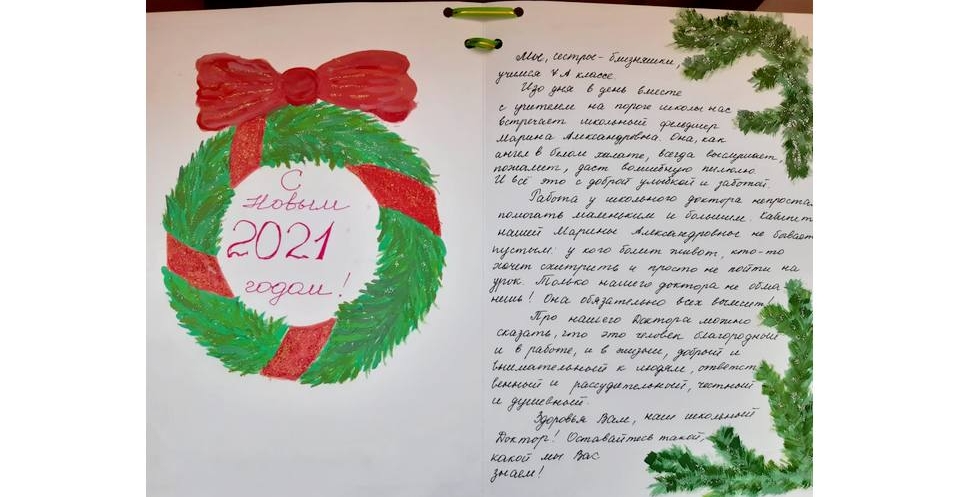 С
Новым
2021
годом!
Мы, сестры-близняшки,
учимся 4 А классе.
Изо дня в день вместе
с учителем на пороге школы нас
встречает школьный фельдшер
Марина Александровна. Она, как
ангел в белом халате, всегда выслушает,
пожалеет, даст волшебную пилюлю.
И всё это с доброй улыбкой и заботой.
Работа у школьного доктора непростая:
помогать маленьким и большим. Кабинет
нашей Марины Александровны не бывает
пустым: у кого болит живот, кто-то
хочет схитрить и просто не пойти на
урок. Только нашего доктора не обма
нешь! Она обязательно всех вылечит!
Про нашего Доктора можно
сказать, что это человек благородный
и в работе, и в жизни, добрый и
внимательный к людям, ответст
венный и рассудительный, честный
и душевный.
Здоровья Вам, наш школьный
Доктор! Оставайтесь такой,
какой мы Вас
знаем!